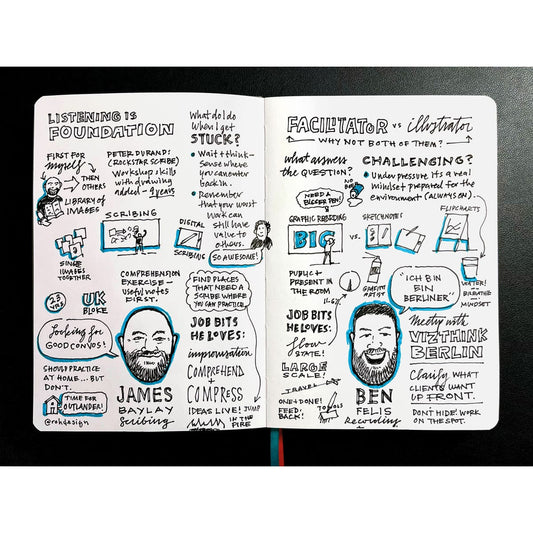 LISTENING IS
FOUNDATION
FIRST FOR
myself
THEN
OTHERS
LIBRARY OF
IMAGES
PETER DURAND:
(ROCKSTAR SCRIBE)
Workshop skills
with drawing
added - 9 years
SCRIBING
DIGITAL
SCRIBING
SINGS
IMAGES
TOGETHER
COMPREHENSION
EXERCISE —
useful notes
FIRST.
23
YRS
UK
BLOKE
Looking for
GOOD CONVOS!
SHOULD PRACTICE
AT HOME... BUT
DON'T.
TIME FOR
OUTLANDER!
@rohdesign
JAMES
BAYLAY
Scribing
What do I do
when I get
STUCK?
• Wait + think -
sense where
you can enter
back in.
• Remember
that you worst
work can
still have
value to
others.
SO AWESOME!
FIND PLACES
THAT NEED A
SCRIBE WHERE
YOU CAN PRACTICE.
JOB BITS
HE LOVES:
improvisation
COMPREHEND
+
COMPRESS
IDEAS LIVE! JUMP
IN THE
FIRE
FACILITATOR vs illustrator
WHY NOT BOTH OF THEM?
what answers
the QUESTION?
NEED A
BIGGER PEN!
CHALLENGING?
• Under pressure its a real
mindset prepared for the
environment (ALWAYS ON).
GRAPHIC RECORDING
BIG
VS.
SKETCHNOTES
FLIPCHARTS
PUBLIC +
PRESENT IN
THE ROOM
GRAFFITI
ARTIST
WATER!
+
BREATHING
+
MINDSET
"ICH BIN
EIN
BERLINER"
JOB BITS
HE LOVES:
flow
STATE!
LARGE
SCALE!
TRAVEL
ONE + DONE!
FEED
BACK!
TOOLS
BEN
FELIS
Recording
Meetup with
VIZTHINK
BERLIN
Clarify WHAT
CLIENTS WANT
UP FRONT.
DON'T HIDE! WORK
ON THE SPOT.